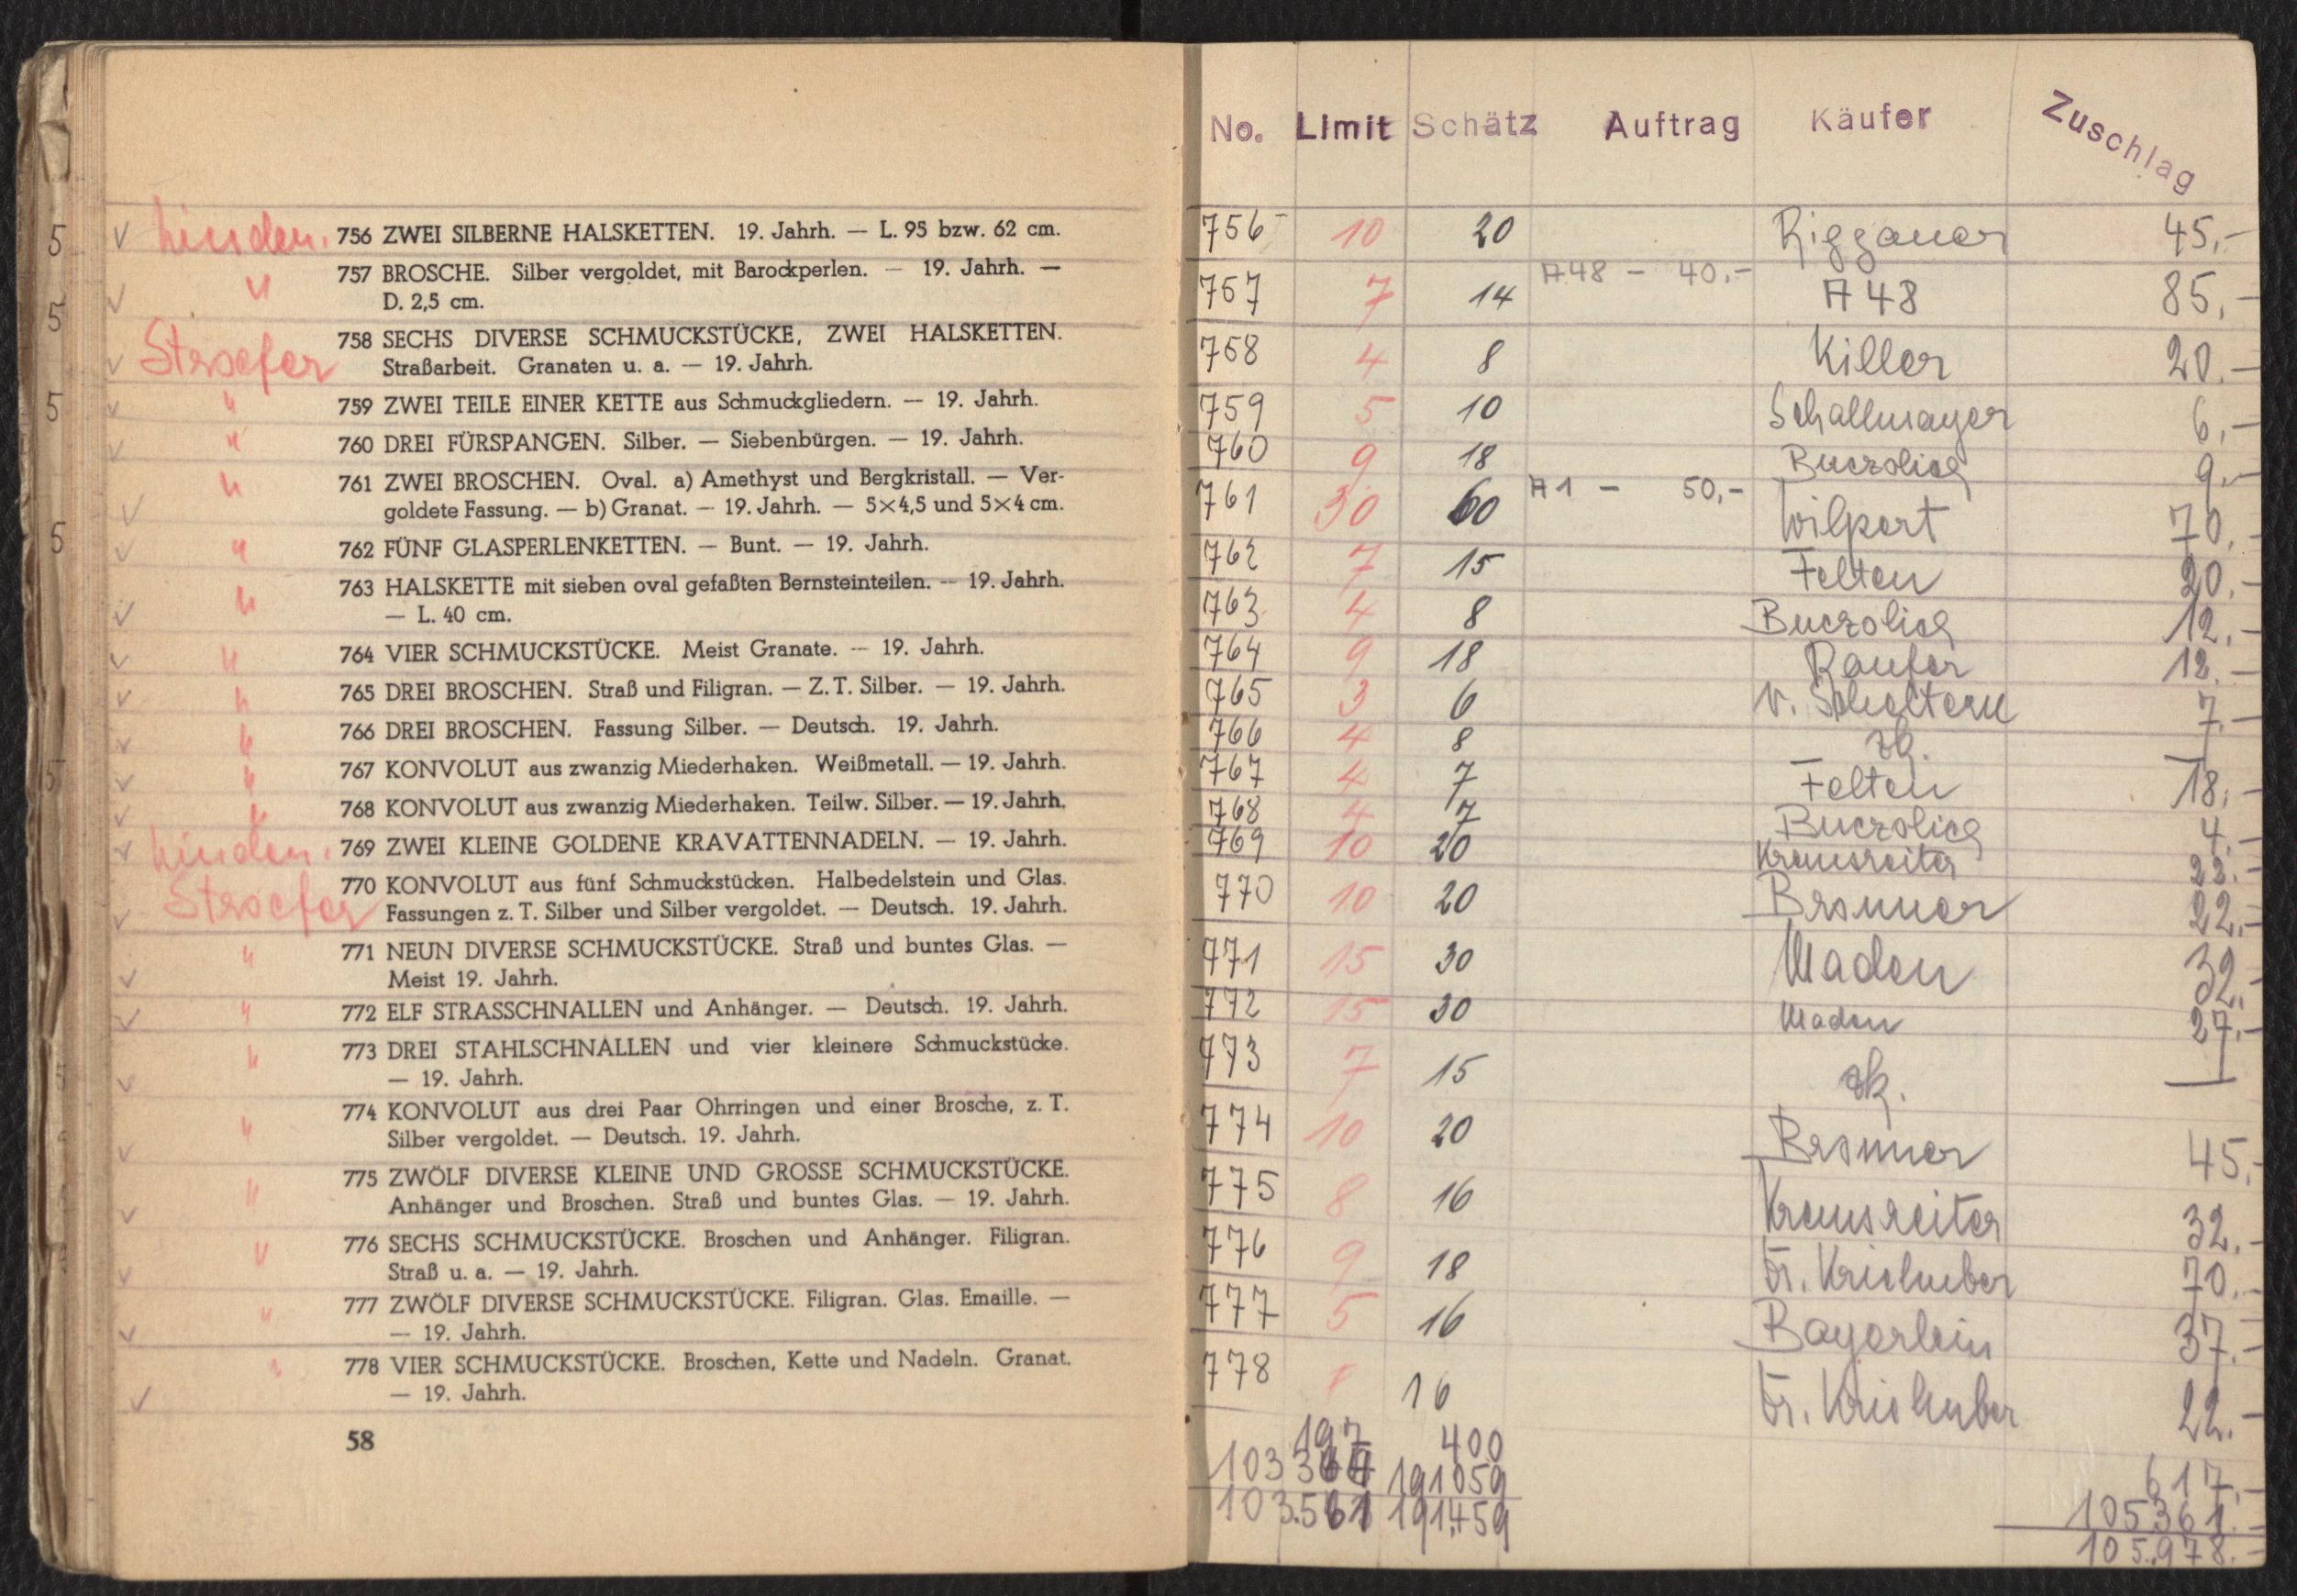 Linden. 756 ZWEI SILBERNE HALSKETTEN. 19. Jahrh. — L. 95 bzw. 62 cm.
" 757 BROSCHE. Silber vergoldet, mit Barockperlen. — 19. Jahrh. —
D. 2,5 cm.
Stroefer 758 SECHS DIVERSE SCHMUCKSTÜCKE, ZWEI HALSKETTEN.
Straßarbeit. Granaten u. a. — 19. Jahrh.
" 759 ZWEI TEILE EINER KETTE aus Schmuckgliedern. — 19. Jahrh.
" 760 DREI FÜRSPANGEN. Silber. — Siebenbürgen. — 19. Jahrh.
" 761 ZWEI BROSCHEN. Oval. a) Amethyst und Bergkristall. — Ver-
goldete Fassung. — b) Granat. — 19. Jahrh. — 5×4,5 und 5×4 cm.
" 762 FÜNF GLASPERLENKETTEN. — Bunt. — 19. Jahrh.
" 763 HALSKETTE mit sieben oval gefaßten Bernsteinteilen. — 19. Jahrh.
— L. 40 cm.
" 764 VIER SCHMUCKSTÜCKE. Meist Granate. — 19. Jahrh.
" 765 DREI BROSCHEN. Straß und Filigran. — Z. T. Silber. — 19. Jahrh.
" 766 DREI BROSCHEN. Fassung Silber. — Deutsch. 19. Jahrh.
" 767 KONVOLUT aus zwanzig Miederhaken. Weißmetall. — 19. Jahrh.
" 768 KONVOLUT aus zwanzig Miederhaken. Teilw. Silber. — 19. Jahrh.
Linden. 769 ZWEI KLEINE GOLDENE KRAVATTENNADELN. — 19. Jahrh.
Stroefer 770 KONVOLUT aus fünf Schmuckstücken. Halbedelstein und Glas.
Fassungen z. T. Silber und Silber vergoldet. — Deutsch. 19. Jahrh.
" 771 NEUN DIVERSE SCHMUCKSTÜCKE. Straß und buntes Glas. —
Meist 19. Jahrh.
" 772 ELF STRASSCHNALLEN und Anhänger. — Deutsch. 19. Jahrh.
" 773 DREI STAHLSCHNALLEN und vier kleinere Schmuckstücke.
— 19. Jahrh.
" 774 KONVOLUT aus drei Paar Ohrringen und einer Brosche, z. T.
Silber vergoldet. — Deutsch. 19. Jahrh.
" 775 ZWÖLF DIVERSE KLEINE UND GROSSE SCHMUCKSTÜCKE.
Anhänger und Broschen. Straß und buntes Glas. — 19. Jahrh.
" 776 SECHS SCHMUCKSTÜCKE. Broschen und Anhänger. Filigran.
Straß u. a. — 19. Jahrh.
" 777 ZWÖLF DIVERSE SCHMUCKSTÜCKE. Filigran. Glas. Emaille. —
— 19. Jahrh.
" 778 VIER SCHMUCKSTÜCKE. Broschen, Kette und Nadeln. Granat.
— 19. Jahrh.
58
No. Limit Schätz Auftrag Käufer Zuschlag
756 10 20 Rigganer 45,-
757 7 14 A48 - 40.- A48 85,-
758 4 8 Killer 20.-
759 5 10 Schallmayer 6,-
760 9 18 9.-
761 30 60 A1 - 50,- Wilpert 70.-
762 7 15 Felten 20.-
763 4 8 12.-
764 9 18 Raufer 12.-
765 3 6 7.-
766 4 8 zk. —
767 4 7 Felten 18.-
768 4 7 4.-
769 10 20 Kronsreiter 22.-
770 10 20 Bronner 22.-
771 15 30 Maden 32.-
772 15 30 Maden 27.-
773 7 15 zk. —
774 10 20 Bronner 45.-
775 8 16 Kronsreiter 32.-
776 9 18 Dr. Kriehuber 70.-
777 5 16 Bayerlein 37.-
778 16 Dr. Kriehuber 22.-
197 400 617.-
103 364 191059 105361.-
103.561 191.459 105.978.-